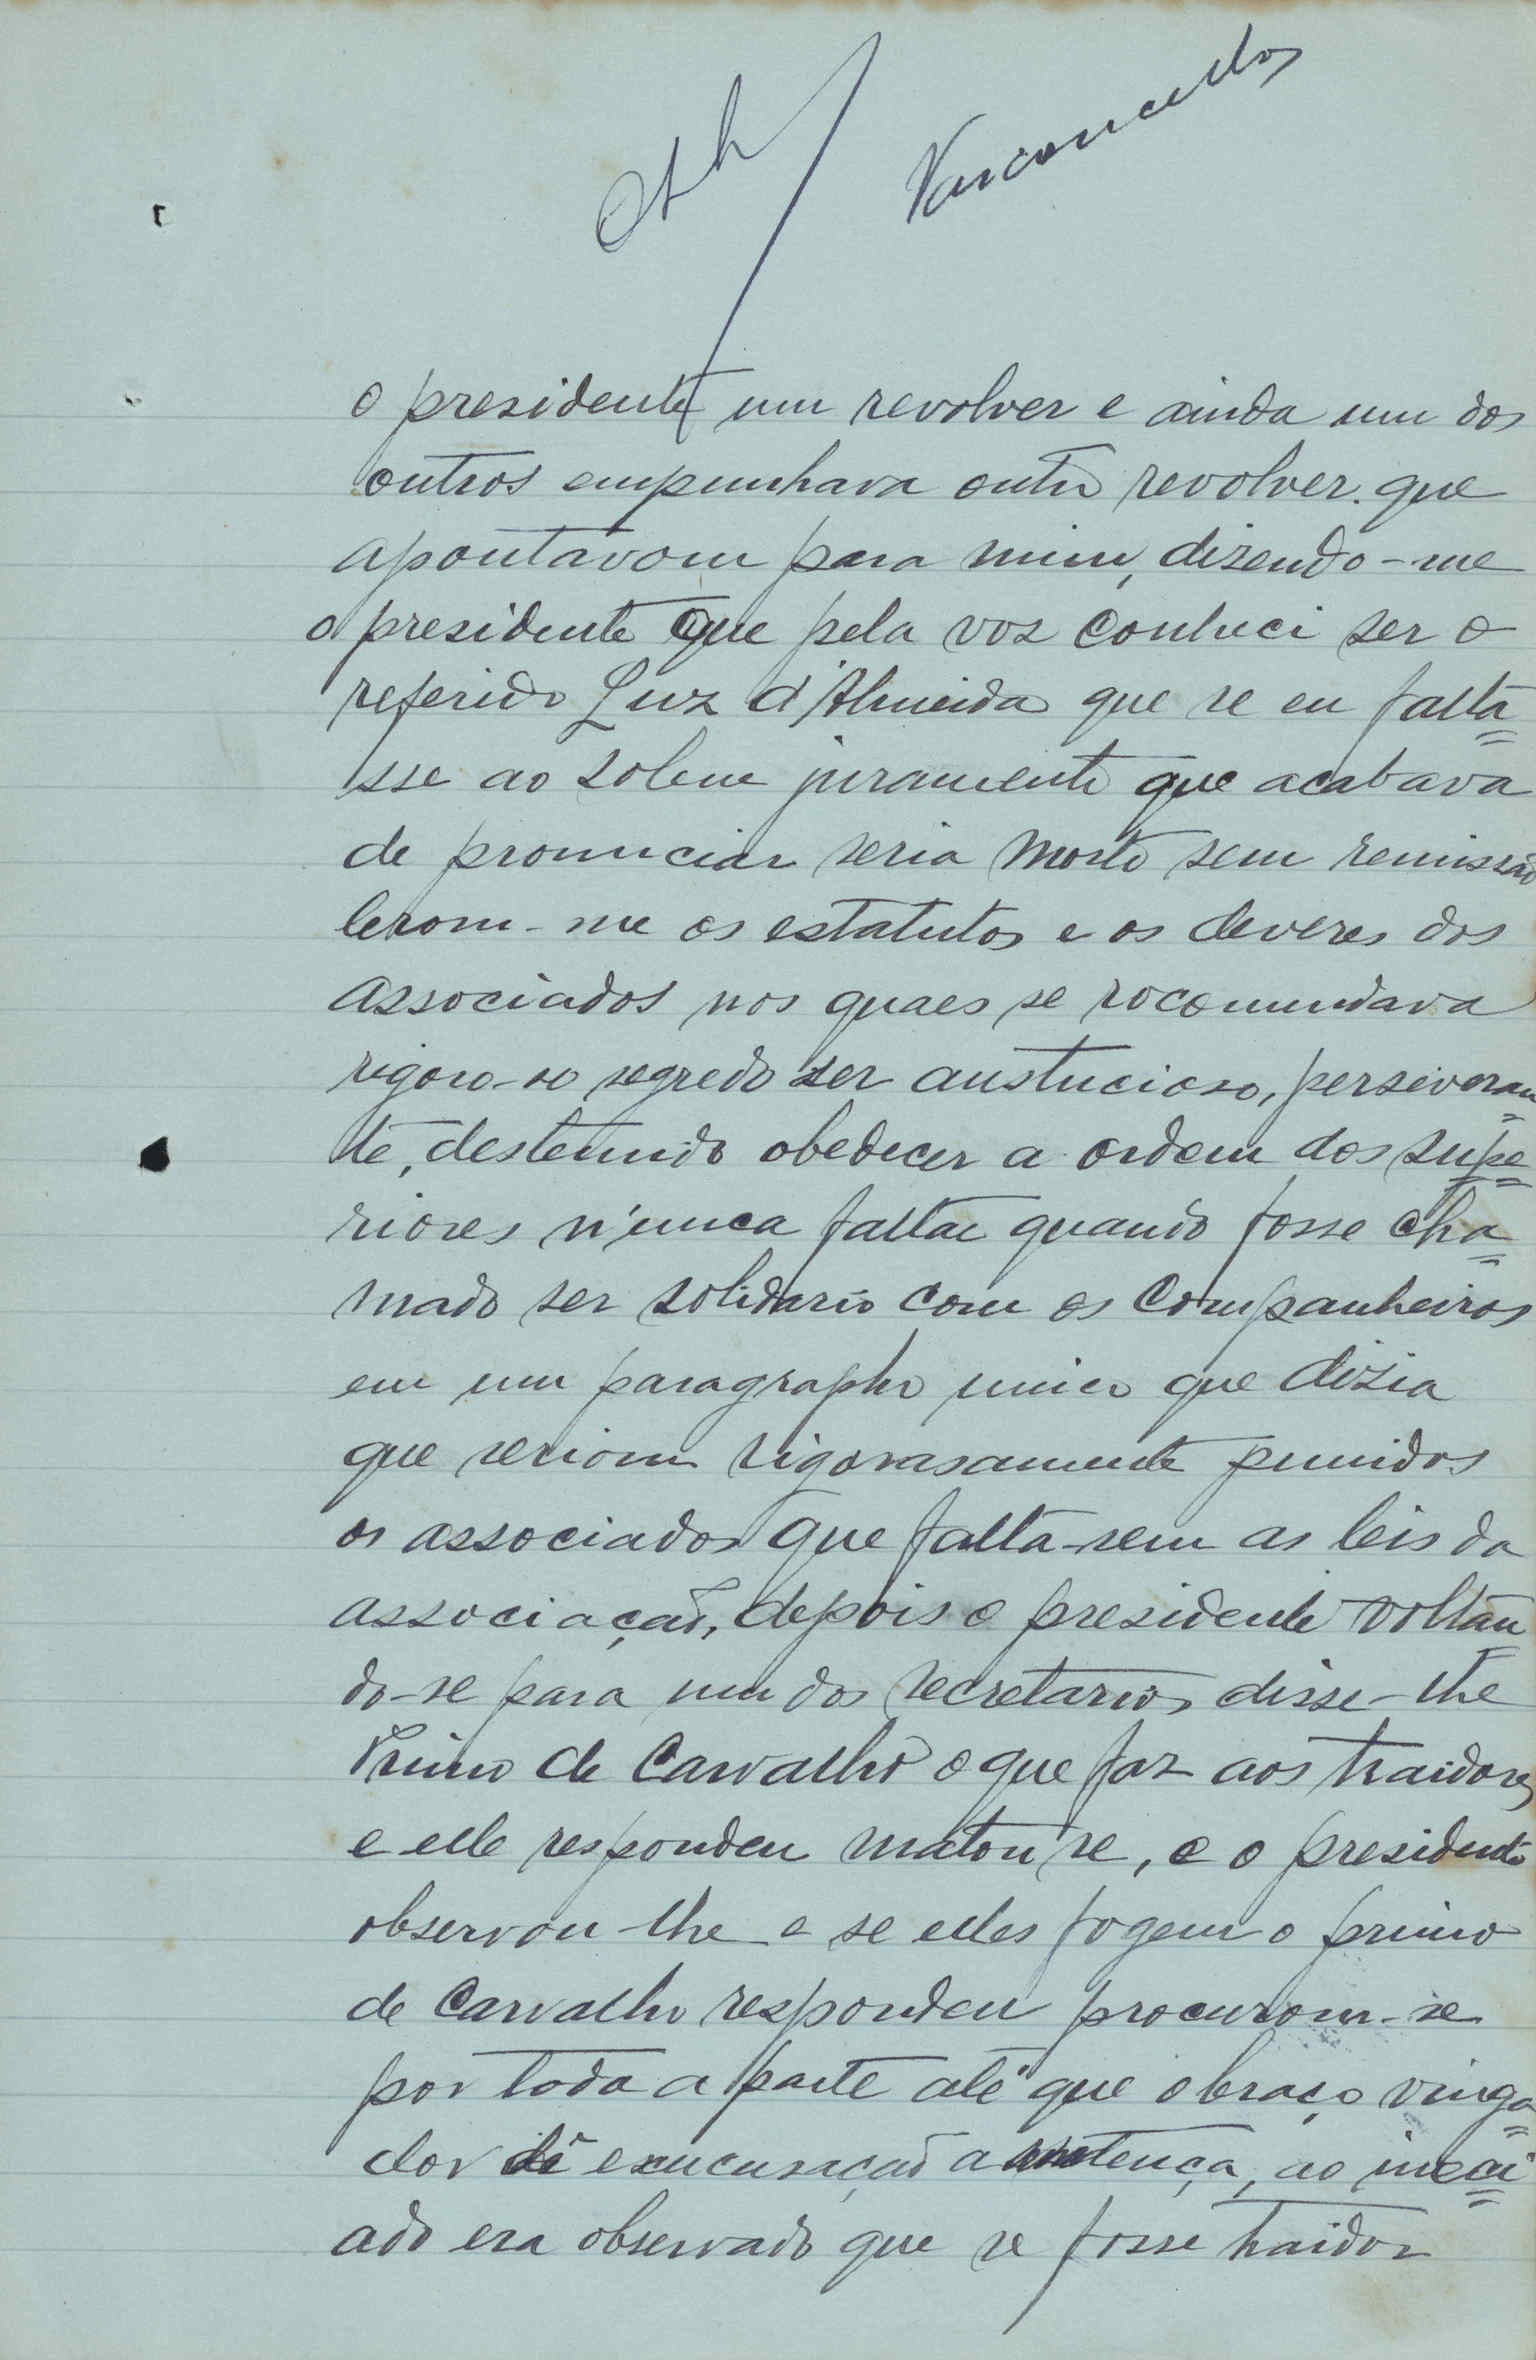 Vasconcellos
o presidente um revolver e ainda um dos
outros empunhava outro revolver. que
apontavom para mim, dizendo-me
o presidente que pela voz conheci ser o
referido Luz d'Almeida que se eu falta=
sse ao solene juramento que acabava
de pronunciar seria morto sem remissão
lerom-me os estatutos e os deveres dos
associados nos quaes se rocomendava
rigoro-so segredo ser austucioso, perseveran=
te, destemido obedecer a ordem dos supe=
riores n'unca faltar quando fosse cha=
mado ser solidario com os companheiros
em um paragrapho unico que dizia
que seriom rigorasamente punidos
os associados que falta-sem as leis da
associação, depois o presidente voltan
do-se para um dos secretarios disse-lhe
Primo de Carvalho o que faz aos traidores
e elle respondeu maton se, e o presidente
observou-lhe e se elles fogem o primo
de Carvalho respondeu procurom-se
por toda a parte até que o braço vinga=
dor dê exucusação a sentença, ao ineci=
ado era observado que se fosse traidor